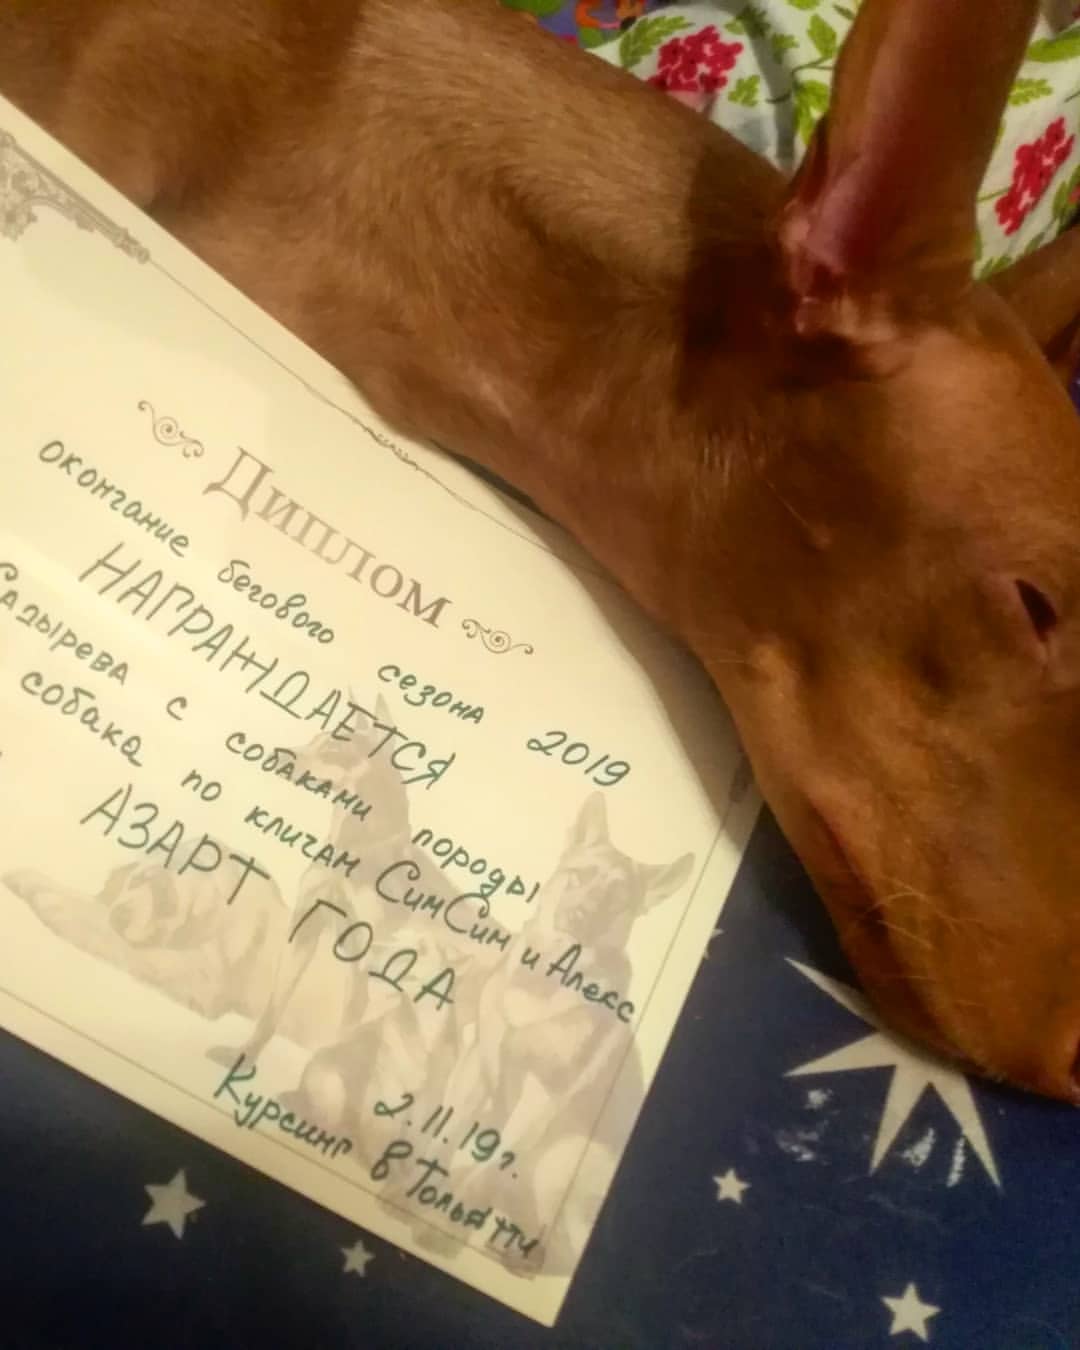 Диплом
окончание бегового сезона 2019
НАГРАЖДАЕТСЯ
с собаками породы
собака по кличам СимСим и Алекс
АЗАРТ ГОДА
2.11.19г.
Курсинг в Тольятти